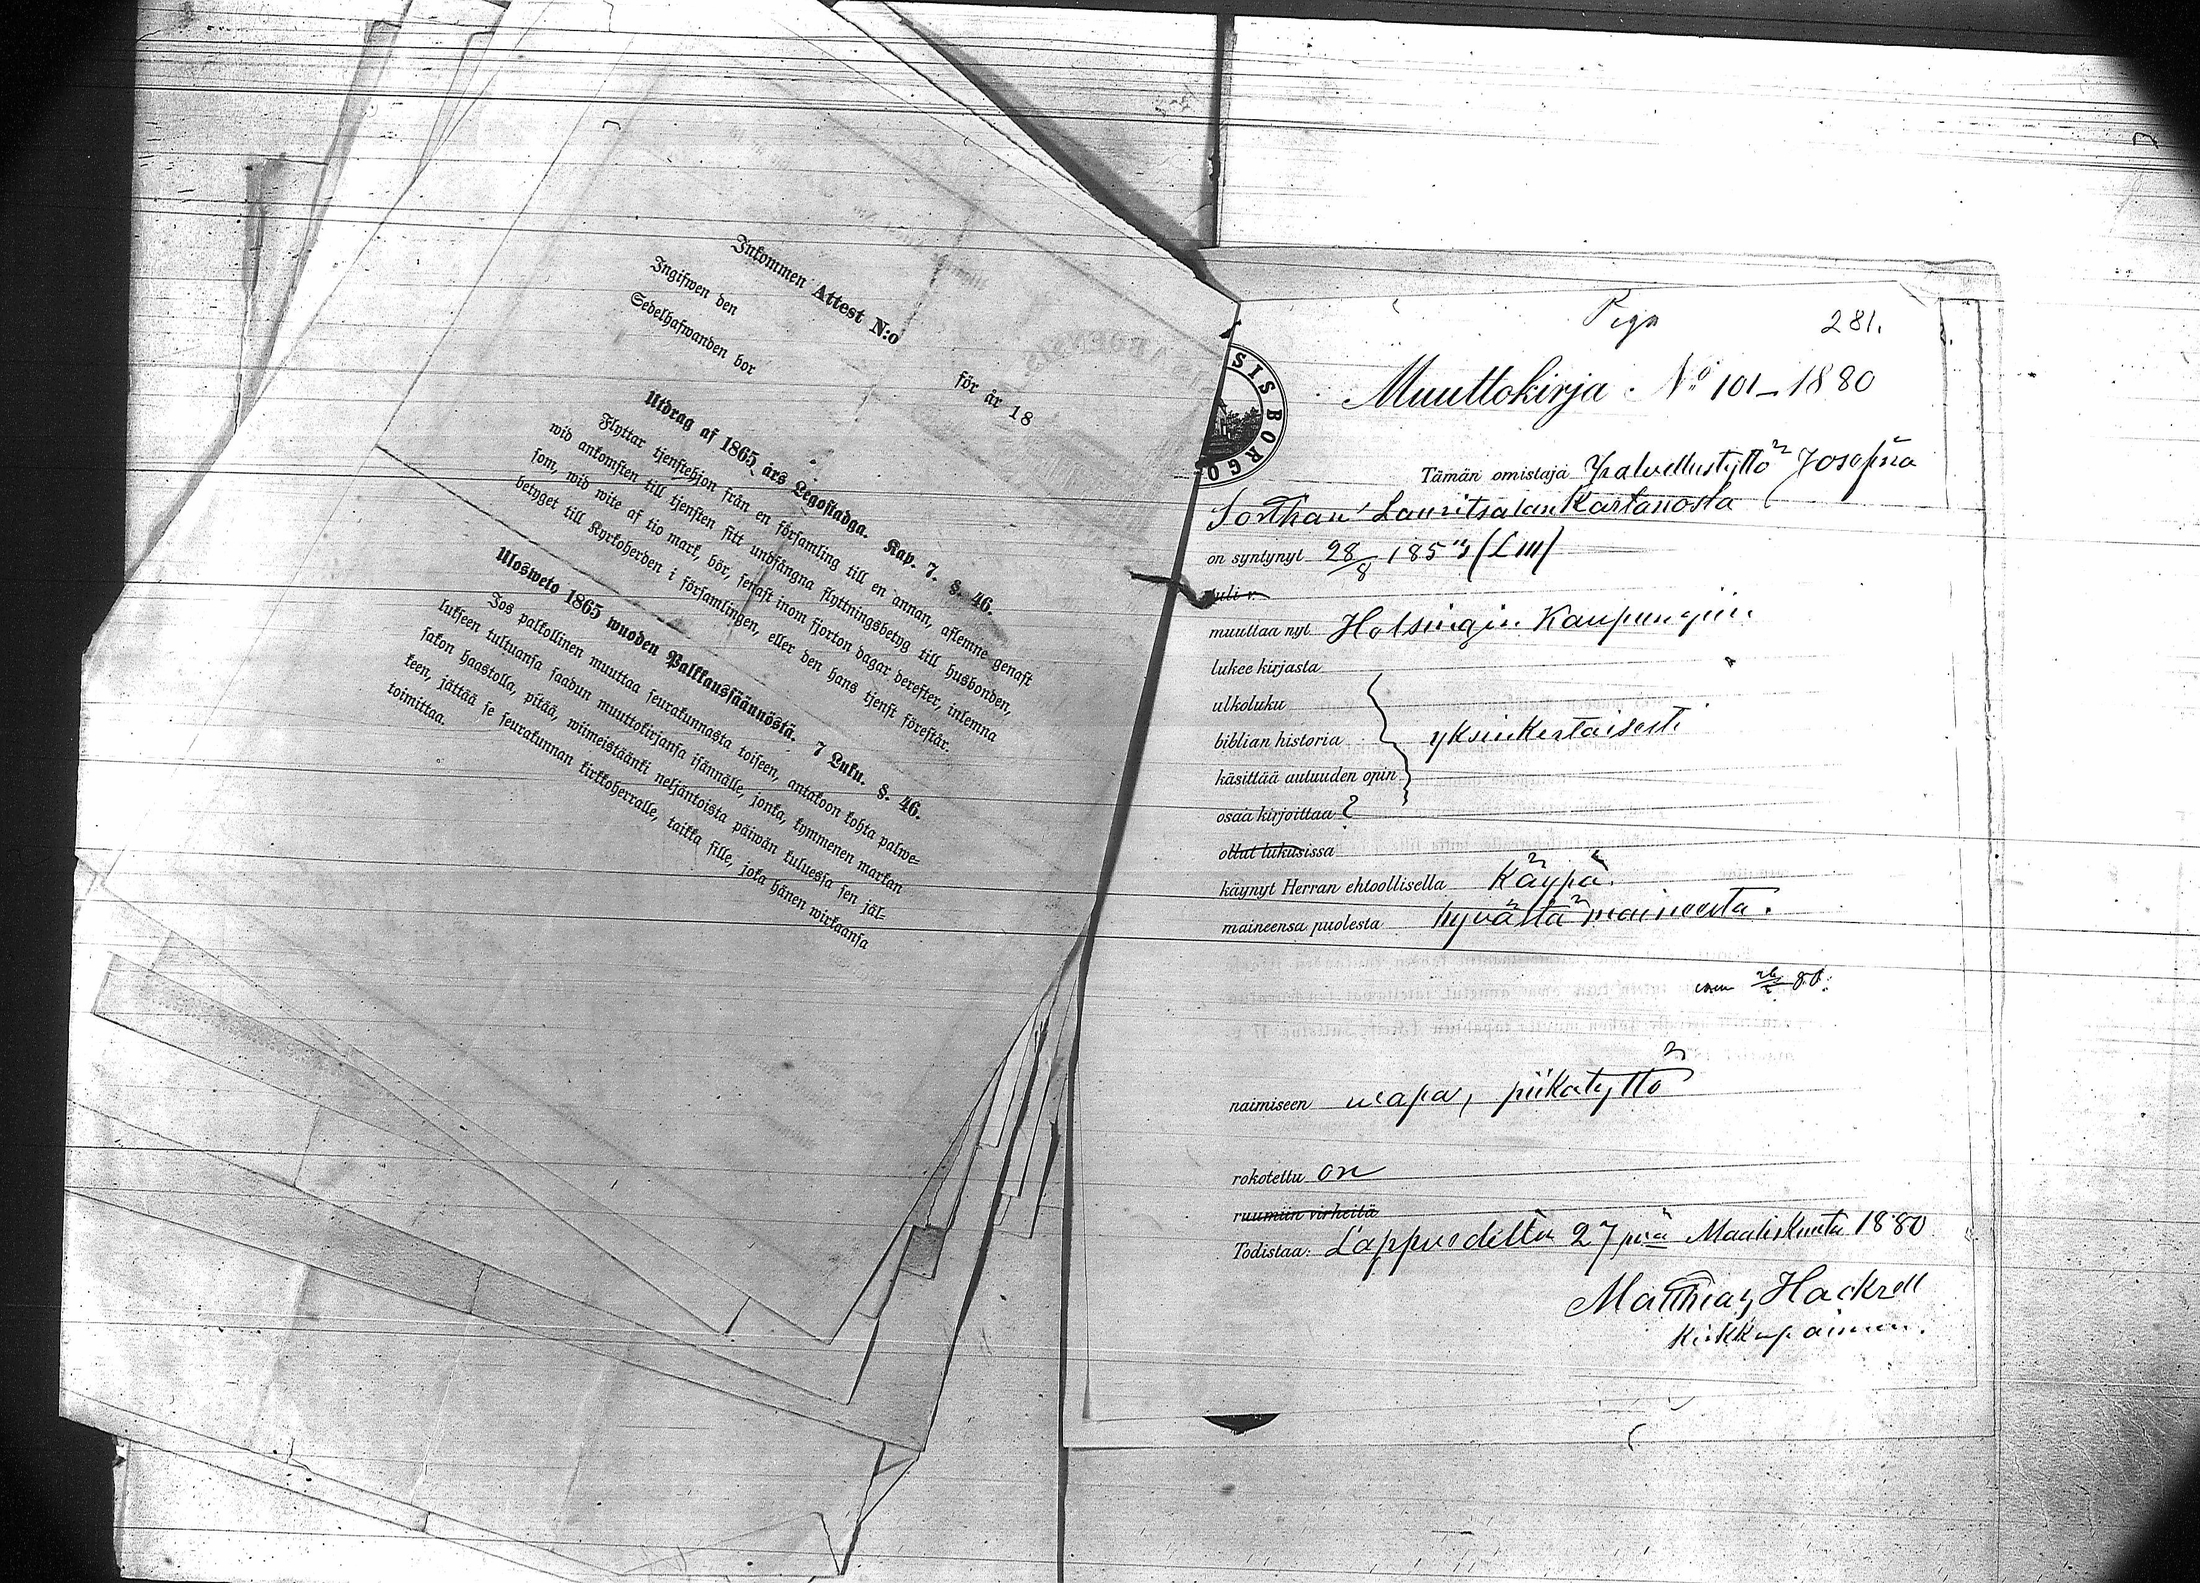 Inkommen Attest N:o
för år 18
Ingifwen den
Sedelhafwanden bor
Utdrag af 1865 års Legostadga. Kap. 7. §. 46.
Flyttar tjenstehjon från en församling till en annan, aflemne genast
wid ankomsten till tjensten sitt undfångna flyttningsbetyg till husbonden,
som, wid wite af tio mark, bör, senast inom fjorton dagar derefter, inlemna
betyget till Kyrkoherden i församlingen, eller den hans tjenst förestår.
Ulosweto 1865 wuoden Palkkaussäännöstä. 7 Luku. §. 46.
Jos palkollinen muuttaa seurakunnasta toiseen, antakoon kohta palwe-
lukseen tultuansa saadun muuttokirjansa isännälle, jonka, kymmenen markan
sakon haastolla, pitää, wiimeistäänki neljäntoista päiwän kuluessa sen jäl-
keen, jättää se seurakunnan kirkkoherralle, taikka sille, joka hänen wirkaansa
toimittaa.
Piga
281.
SIS BORGO
Muuttokirja No 101 – 1880
Tämän omistaja Palvellustyttö Josefina
Lauritsalan Kartanosta
on syntynyt 28/8 1853 (L III)
muuttaa nyt Helsingin Kaupungiin.
lukee kirjasta
ulkoluku
biblian historia yksinkertaisesti
käsittää autuuden opin
osaa kirjoittaa ?
ollut lukusissa
käynyt Herran ehtoollisella Käypä.
maineensa puolesta hyvästä maineesta.
naimiseen vapa, piikatyttö
rokotettu on
ruumiin virheitä
Todistaa: Lappvedeltä 27 pnä Maaliskuuta 1880
Matthias Hackzell
Kirkkopaimen.